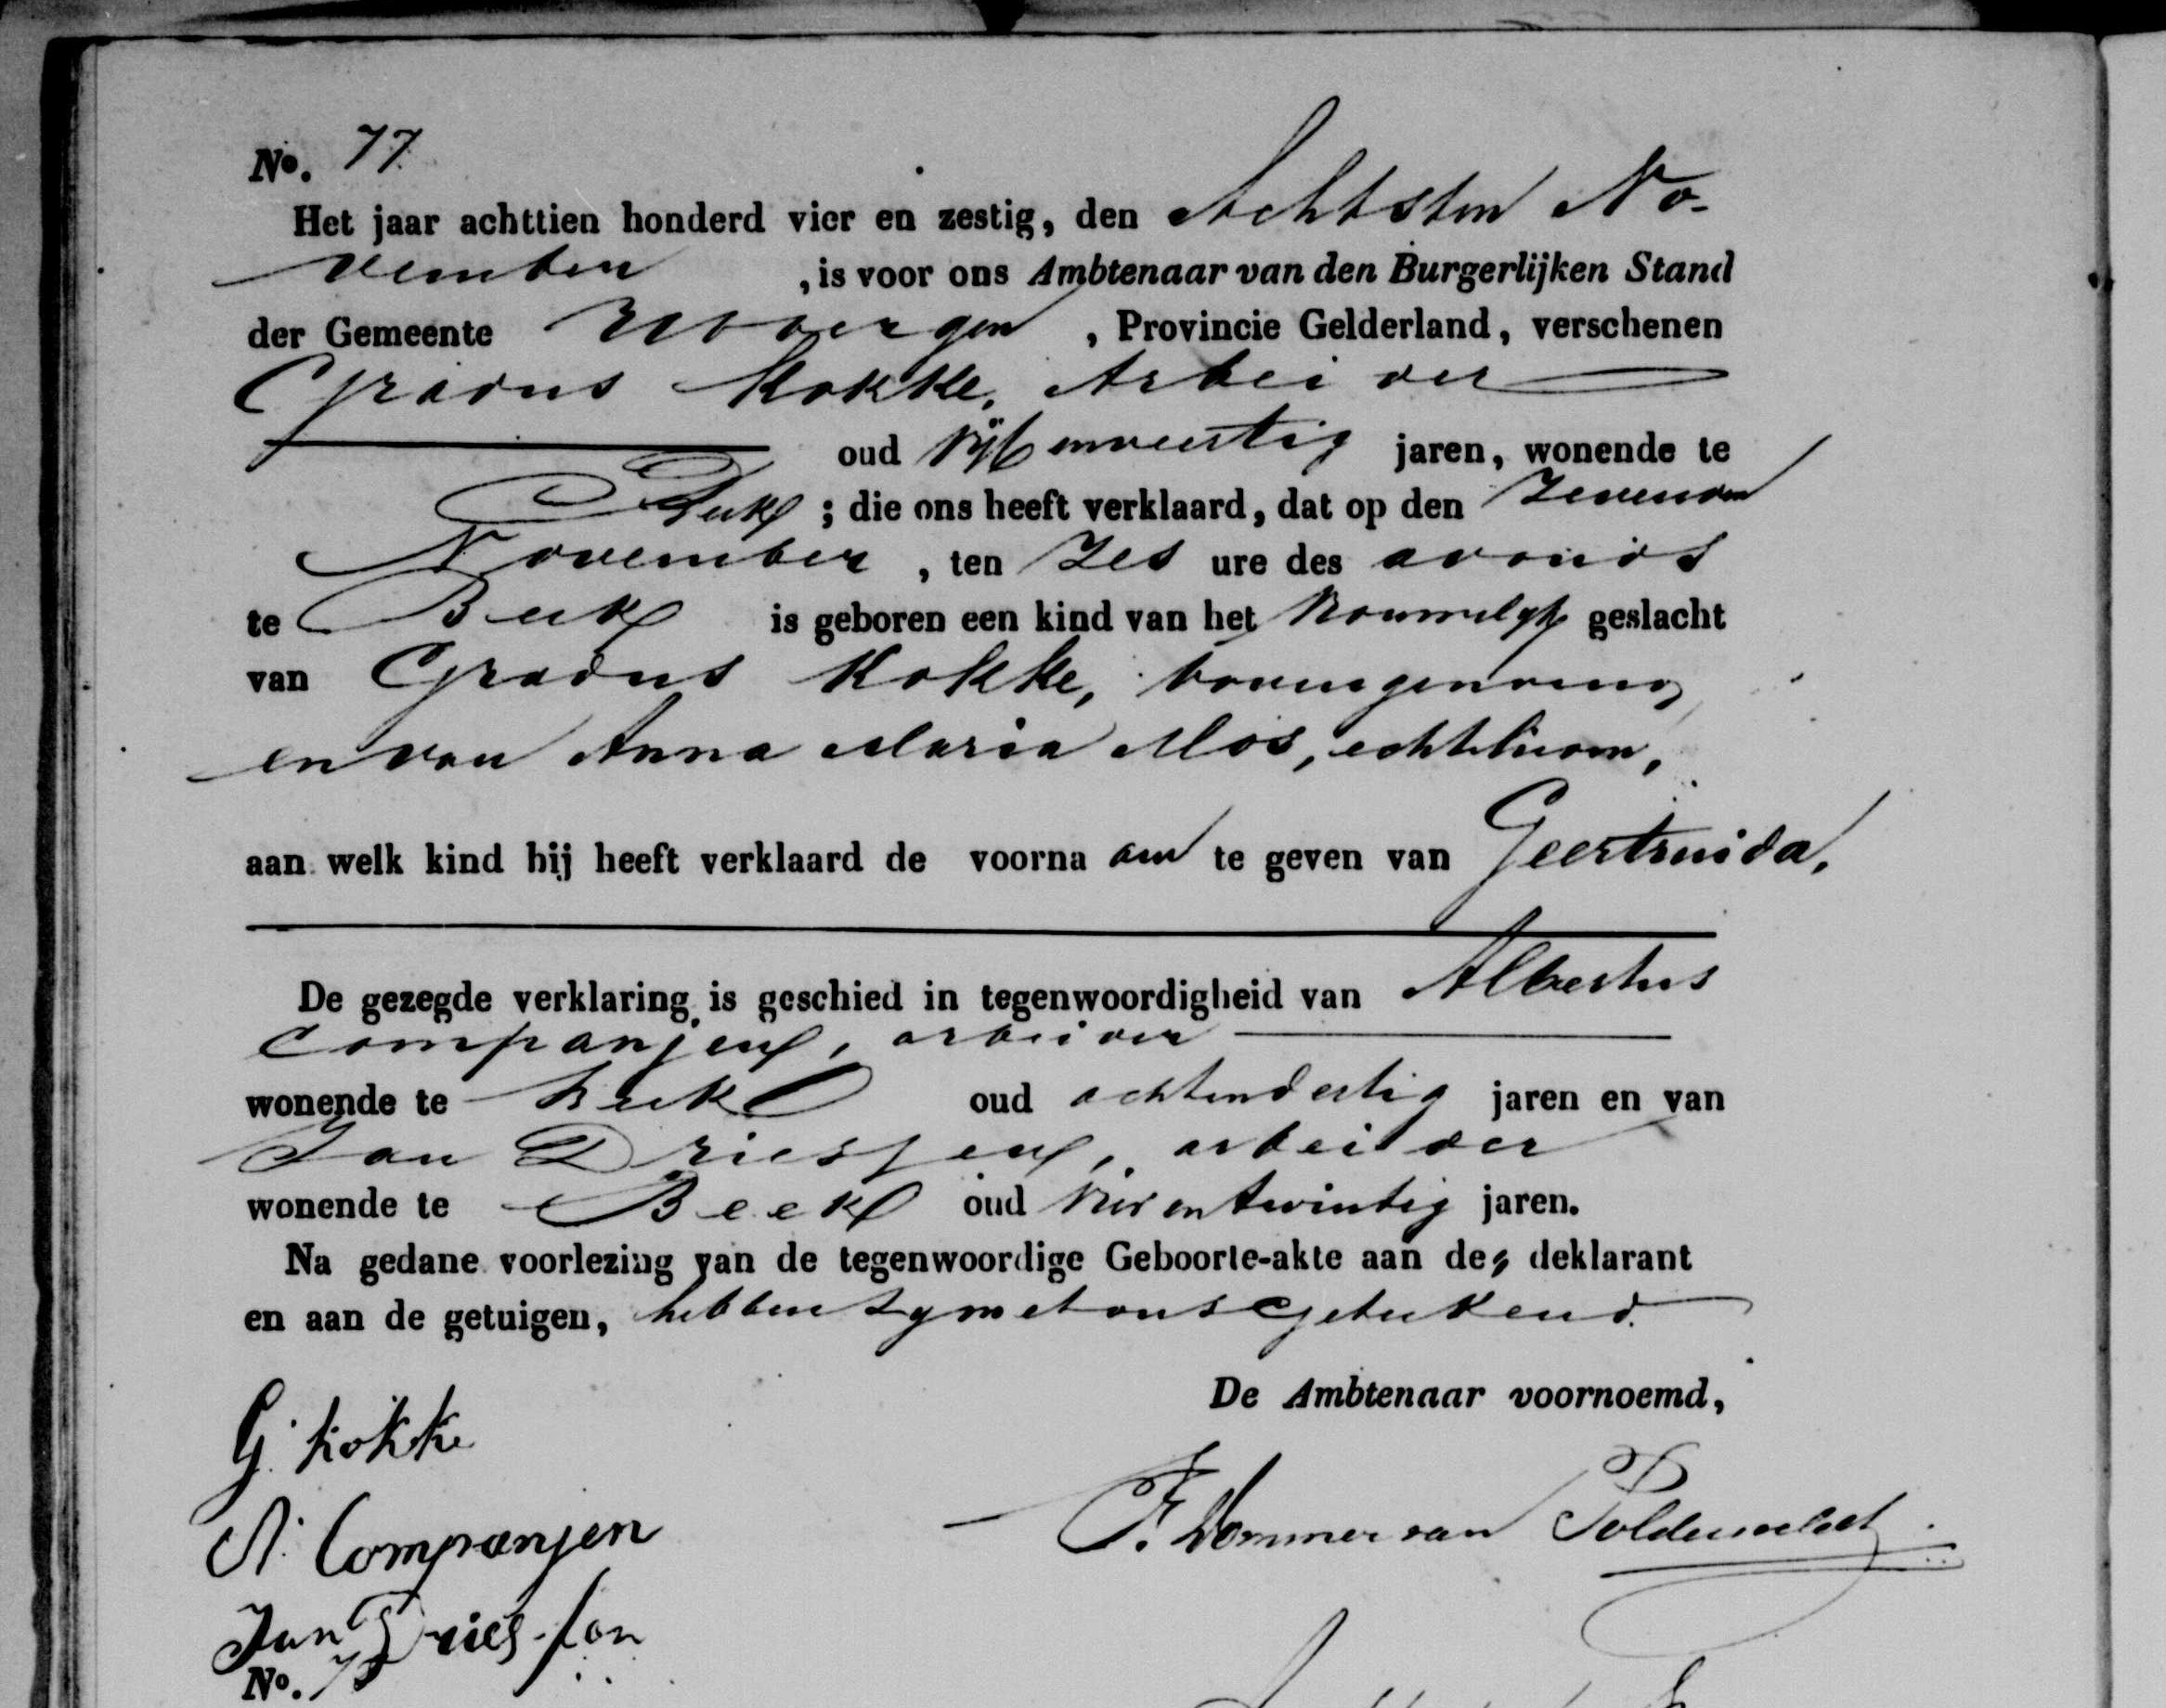 No. 77
Het jaar achttien honderd vier en zestig, den Achtsten No-
vember , is voor ons Ambtenaar van den Burgerlijken Stand
der Gemeente Ubbergen , Provincie Gelderland, verschenen
Gradus Kokke, Arbeider
oud vijfenveertig jaren, wonende te
Beek ; die ons heeft verklaard, dat op den Zevenden
November , ten Zes ure des avonds
te Beek is geboren een kind van het vrouwelijk geslacht
van Gradus Kokke, bovengenoemd
en van Anna Maria Mos, echtelieden,
aan welk kind hij heeft verklaard de voorna am te geven van Geertruida,
De gezegde verklaring is geschied in tegenwoordigheid van Albertus
Companjen, arbeider
wonende te Beek oud achtendertig jaren en van
Jan Driessen, arbeider
wonende te Beek oud vierentwintig jaren.
Na gedane voorlezing van de tegenwoordige Geboorte-akte aan den deklarant
en aan de getuigen, hebben zy met ons geteekend.
De Ambtenaar voornoemd,
G. Kokke
A. Companjen
F. Dommer van Polderveldt
Jan Driessen
No. 78